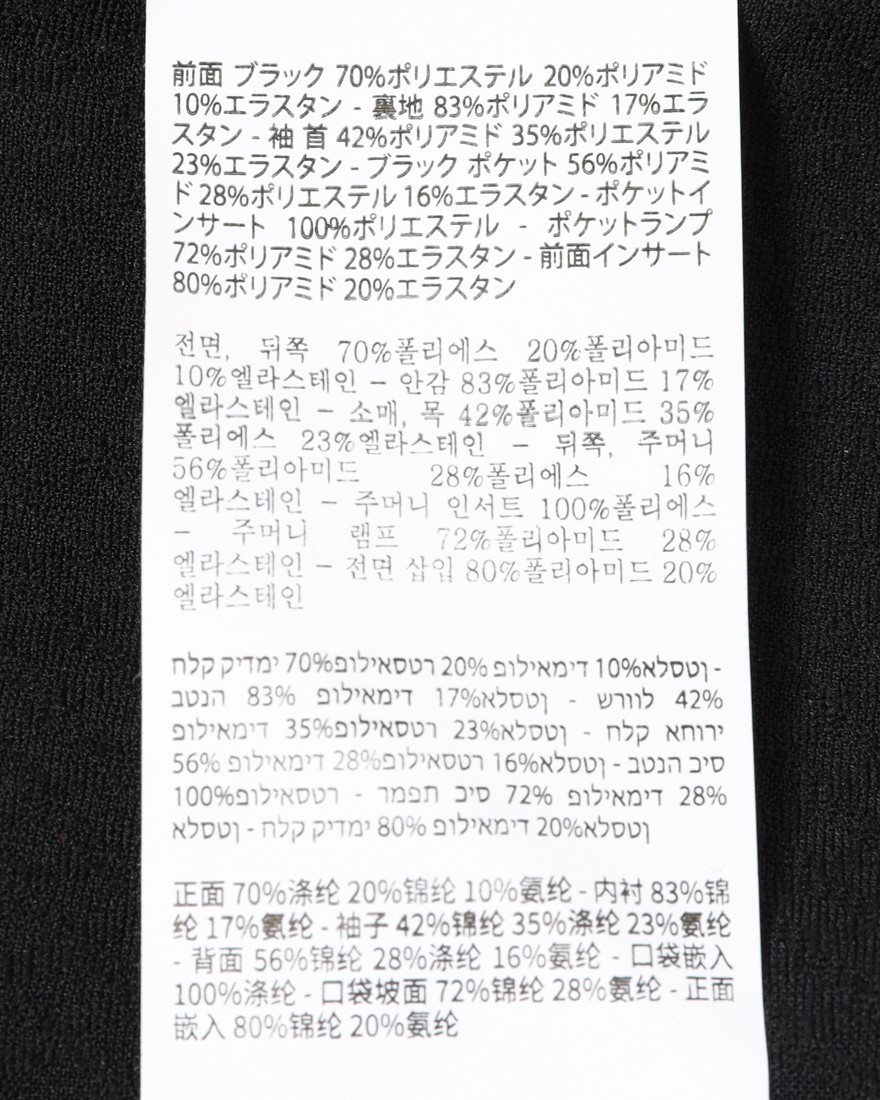 前面 ブラック 70%ポリエステル 20%ポリアミド
10%エラスタン - 裏地 83%ポリアミド 17%エラ
スタン - 袖 首 42%ポリアミド 35%ポリエステル
23%エラスタン - ブラック ポケット 56%ポリアミ
ド 28%ポリエステル 16%エラスタン - ポケットイ
ンサート 100%ポリエステル - ポケットランプ
72%ポリアミド 28%エラスタン - 前面インサート
80%ポリアミド 20%エラスタン
전면, 뒤쪽 70%폴리에스 20%폴리아미드
10%엘라스테인 – 안감 83%폴리아미드 17%
엘라스테인 – 소매, 목 42%폴리아미드 35%
폴리에스 23%엘라스테인 – 뒤쪽, 주머니
56%폴리아미드 28%폴리에스 16%
엘라스테인 – 주머니 인서트 100%폴리에스
– 주머니 램프 72%폴리아미드 28%
엘라스테인 – 전면 삽입 80%폴리아미드 20%
엘라스테인
חלק קידמי 70%פוליאסטר 20% פוליאמיד 10%אלסטן -
בטנה 83% פוליאמיד 17%אלסטן - שרוול 42%
פוליאמיד 35%פוליאסטר 23%אלסטן - חלק אחורי
56% פוליאמיד 28%פוליאסטר 16%אלסטן - בטנה כיס
100%פוליאסטר - רמפת כיס 72% פוליאמיד 28%
אלסטן - חלק קידמי 80% פוליאמיד 20%אלסטן
正面 70%涤纶 20%锦纶 10%氨纶 - 内衬 83%锦
纶 17%氨纶 - 袖子 42%锦纶 35%涤纶 23%氨纶
- 背面 56%锦纶 28%涤纶 16%氨纶 - 口袋嵌入
100%涤纶 - 口袋坡面 72%锦纶 28%氨纶 - 正面
嵌入 80%锦纶 20%氨纶